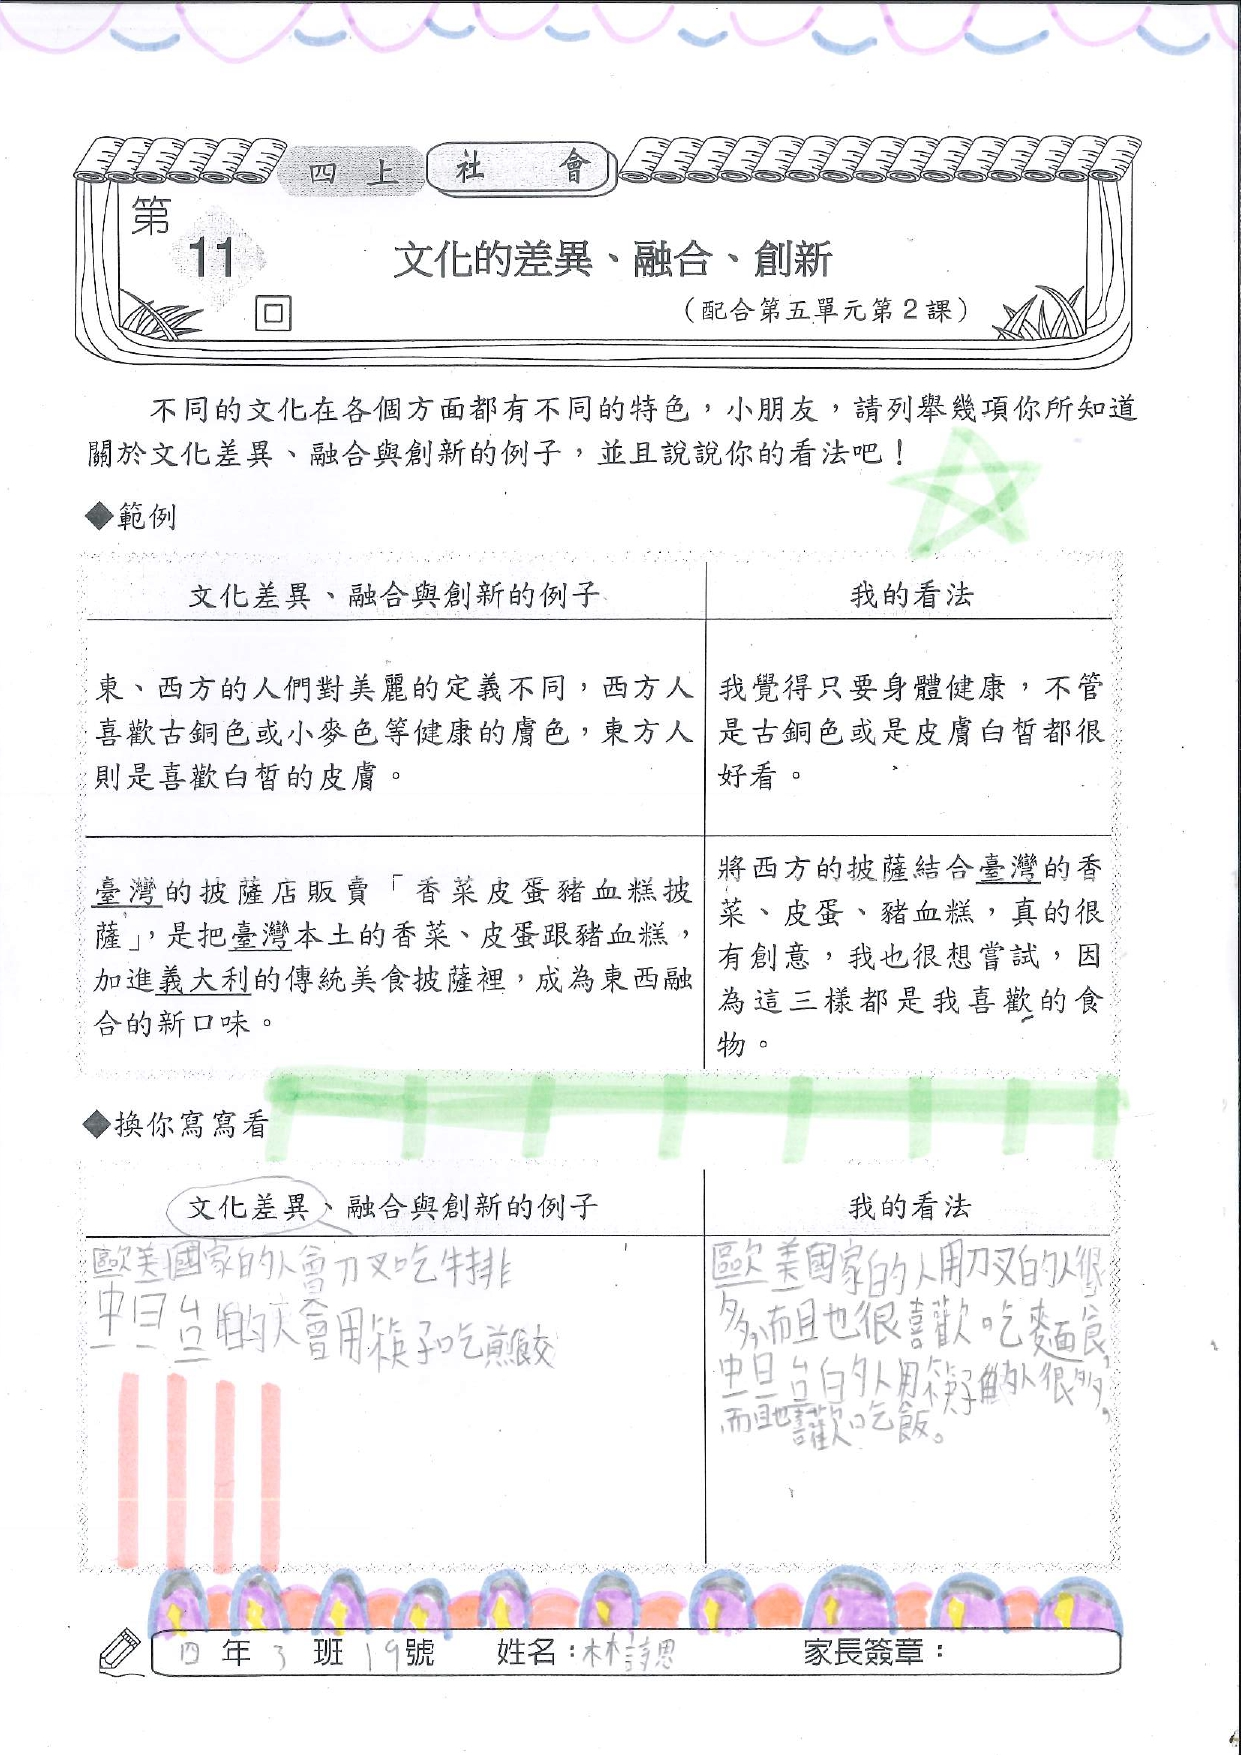 四上 社會
第
11
回
文化的差異、融合、創新
（配合第五單元第2課）
不同的文化在各個方面都有不同的特色，小朋友，請列舉幾項你所知道
關於文化差異、融合與創新的例子，並且說說你的看法吧！
◆範例
文化差異、融合與創新的例子
我的看法
東、西方的人們對美麗的定義不同，西方人
喜歡古銅色或小麥色等健康的膚色，東方人
則是喜歡白皙的皮膚。
我覺得只要身體健康，不管
是古銅色或是皮膚白皙都很
好看。
臺灣的披薩店販賣「香菜皮蛋豬血糕披
薩」，是把臺灣本土的香菜、皮蛋跟豬血糕，
加進義大利的傳統美食披薩裡，成為東西融
合的新口味。
將西方的披薩結合臺灣的香
菜、皮蛋、豬血糕，真的很
有創意，我也很想嘗試，因
為這三樣都是我喜歡的食
物。
◆換你寫寫看
文化差異、融合與創新的例子
我的看法
歐美國家的人會刀叉吃牛排
中日台的人會用筷子吃煎餃
歐美國家的人用刀叉的人很
多，而且也很喜歡吃麵食，
中日台的人用筷子的人很多，
而且也喜歡吃飯。
四年3班19號 姓名：林詩恩 家長簽章：